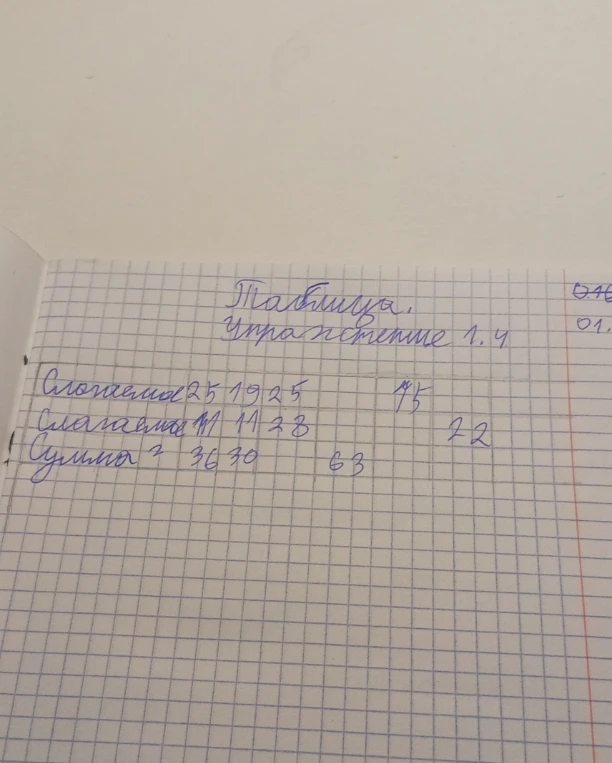 Таблица.
Упражнение 1.4
01.
Слагаемое 25 19 25 75
Слагаемое 11 11 28 22
Сумма 36 30 63